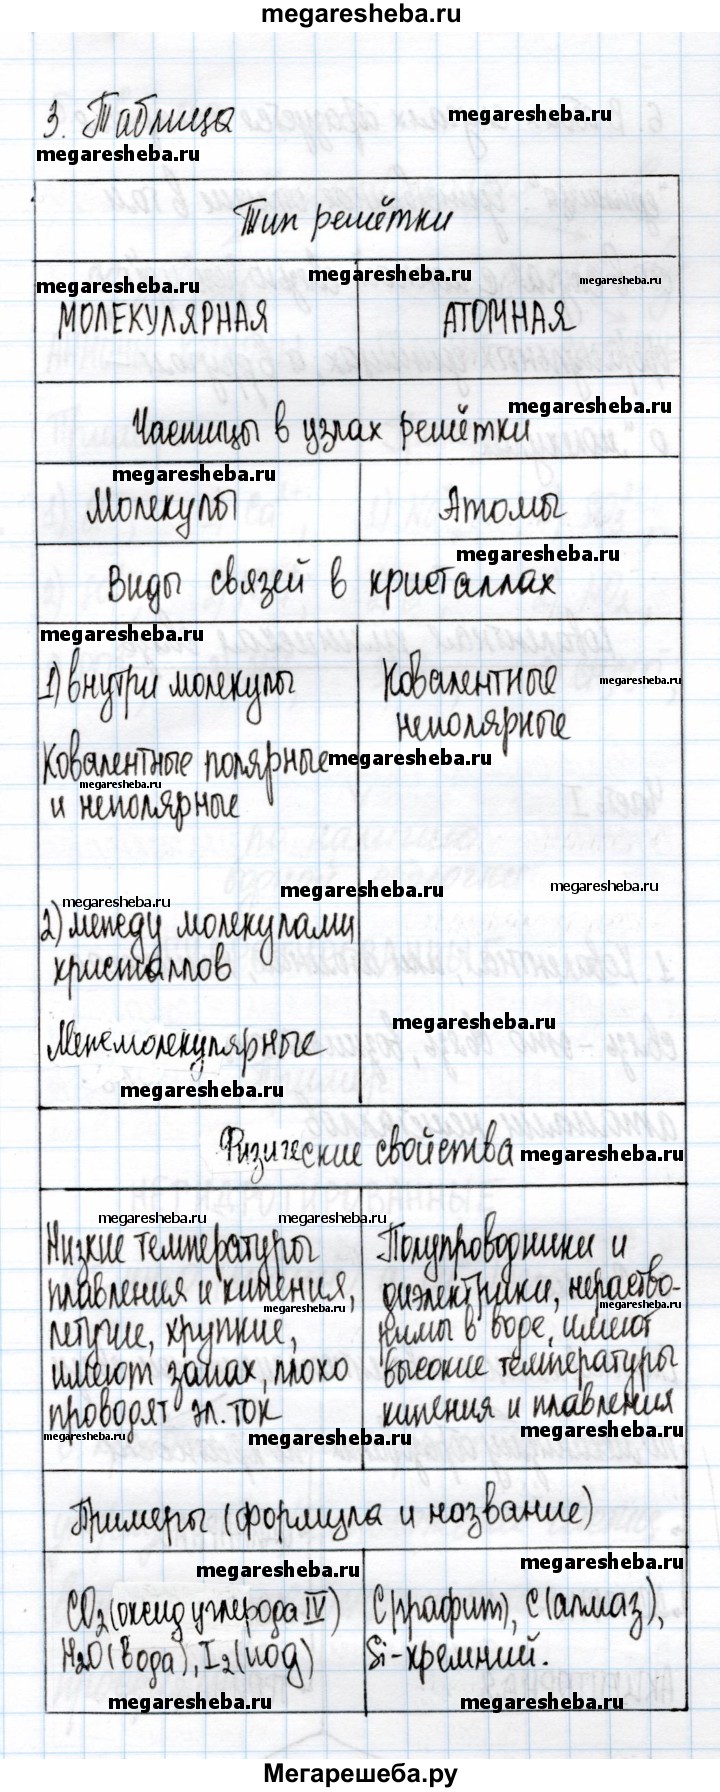 megaresheba.ru
3. Таблица
megaresheba.ru
megaresheba.ru
Тип решётки
megaresheba.ru
megaresheba.ru
megaresheba.ru
МОЛЕКУЛЯРНАЯ
АТОМНАЯ
megaresheba.ru
Частицы в узлах решётки
megaresheba.ru
Молекулы
Атомы
megaresheba.ru
Виды связей в кристаллах
megaresheba.ru
1) внутри молекулы
Ковалентные полярные
megaresheba.ru
и неполярные
Ковалентные
неполярные
megaresheba.ru
megaresheba.ru
megaresheba.ru
megaresheba.ru
megaresheba.ru
2) между молекулами
кристаллов
Межмолекулярные
megaresheba.ru
megaresheba.ru
Физические свойства
megaresheba.ru
megaresheba.ru
megaresheba.ru
Низкие температуры
плавления и кипения,
megaresheba.ru
летучие, хрупкие,
имеют запах, плохо
проводят эл. ток
megaresheba.ru
megaresheba.ru
Полупроводники и
диэлектрики, нераство-
megaresheba.ru
римы в воде, имеют
высокие температуры
кипения и плавления
megaresheba.ru
Примеры (формула и название)
megaresheba.ru
megaresheba.ru
CO2 (оксид углерода IV)
H2O (вода), I2 (иод)
C (графит), C (алмаз),
Si - кремний.
megaresheba.ru
megaresheba.ru
Мегарешеба.ру